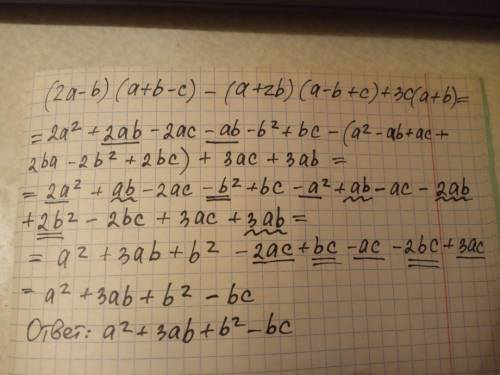 (2a-b) (a+b-c) - (a+2b) (a-b+c)+3c(a+b)=
= 2a² + 2ab - 2ac - ab - b² + bc - (a² - ab + ac +
2ba - 2b² + 2bc) + 3ac + 3ab =
= 2a² + ab - 2ac - b² + bc - a² + ab - ac - 2ab
+ 2b² - 2bc + 3ac + 3ab =
= a² + 3ab + b² - 2ac + bc - ac - 2bc + 3ac
= a² + 3ab + b² - bc
Ответ: a² + 3ab + b² - bc